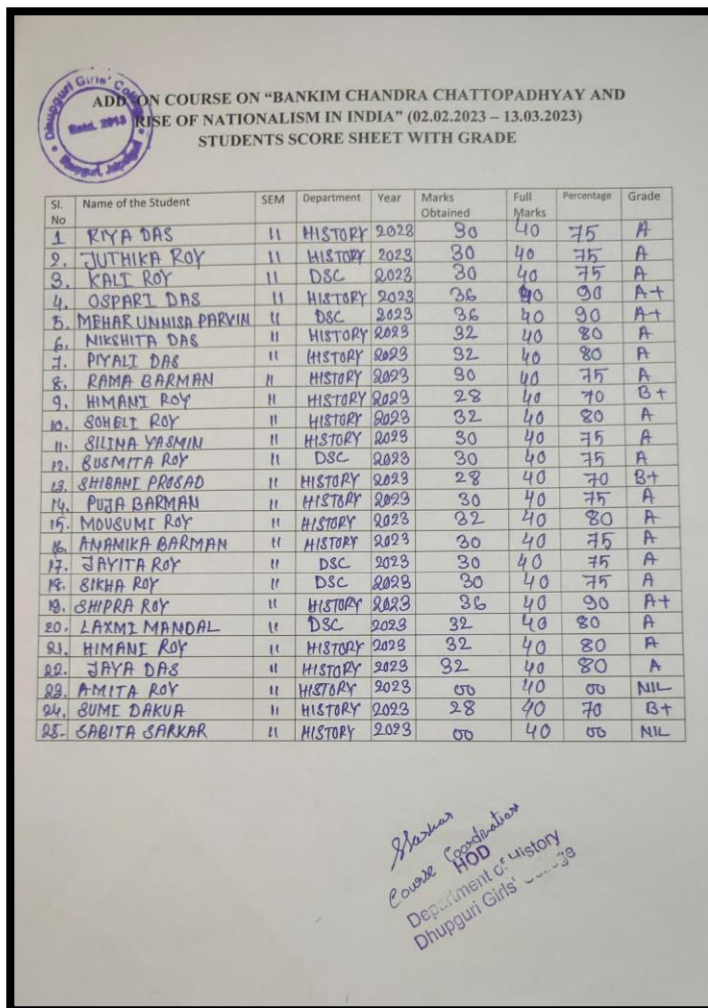 Dhupguri Girls' College
Estd. 2013
Dhupguri, Jalpaiguri
ADD-ON COURSE ON “BANKIM CHANDRA CHATTOPADHYAY AND
RISE OF NATIONALISM IN INDIA” (02.02.2023 – 13.03.2023)
STUDENTS SCORE SHEET WITH GRADE
Sl. No Name of the Student SEM Department Year Marks Obtained Full Marks Percentage Grade
1 RIYA DAS II HISTORY 2023 30 40 75 A
2. JUTHIKA ROY II HISTORY 2023 30 40 75 A
3. KALI ROY II DSC 2023 30 40 75 A
4. OSPARI DAS II HISTORY 2023 36 40 90 A+
5. MEHAR UNNISA PARVIN II DSC 2023 36 40 90 A+
6. NIKSHITA DAS II HISTORY 2023 32 40 80 A
7. PIYALI DAS II HISTORY 2023 32 40 80 A
8. RAMA BARMAN II HISTORY 2023 30 40 75 A
9. HIMANI ROY II HISTORY 2023 28 40 70 B+
10. SOHELI ROY II HISTORY 2023 32 40 80 A
11. SILINA YASMIN II HISTORY 2023 30 40 75 A
12. SUSMITA ROY II DSC 2023 30 40 75 A
13. SHIBANI PROSAD II HISTORY 2023 28 40 70 B+
14. PUJA BARMAN II HISTORY 2023 30 40 75 A
15. MOUSUMI ROY II HISTORY 2023 32 40 80 A
16. ANAMIKA BARMAN II HISTORY 2023 30 40 75 A
17. JAYITA ROY II DSC 2023 30 40 75 A
18. SIKHA ROY II DSC 2023 30 40 75 A
19. SHIPRA ROY II HISTORY 2023 36 40 90 A+
20. LAXMI MANDAL II DSC 2023 32 40 80 A
21. HIMANI ROY II HISTORY 2023 32 40 80 A
22. JAYA DAS II HISTORY 2023 32 40 80 A
23. AMITA ROY II HISTORY 2023 00 40 00 NIL
24. SUMI DAKUA II HISTORY 2023 28 40 70 B+
25. SABITA SARKAR II HISTORY 2023 00 40 00 NIL
SSarkar
Course Coordinator
HOD
Department of History
Dhupguri Girls' College